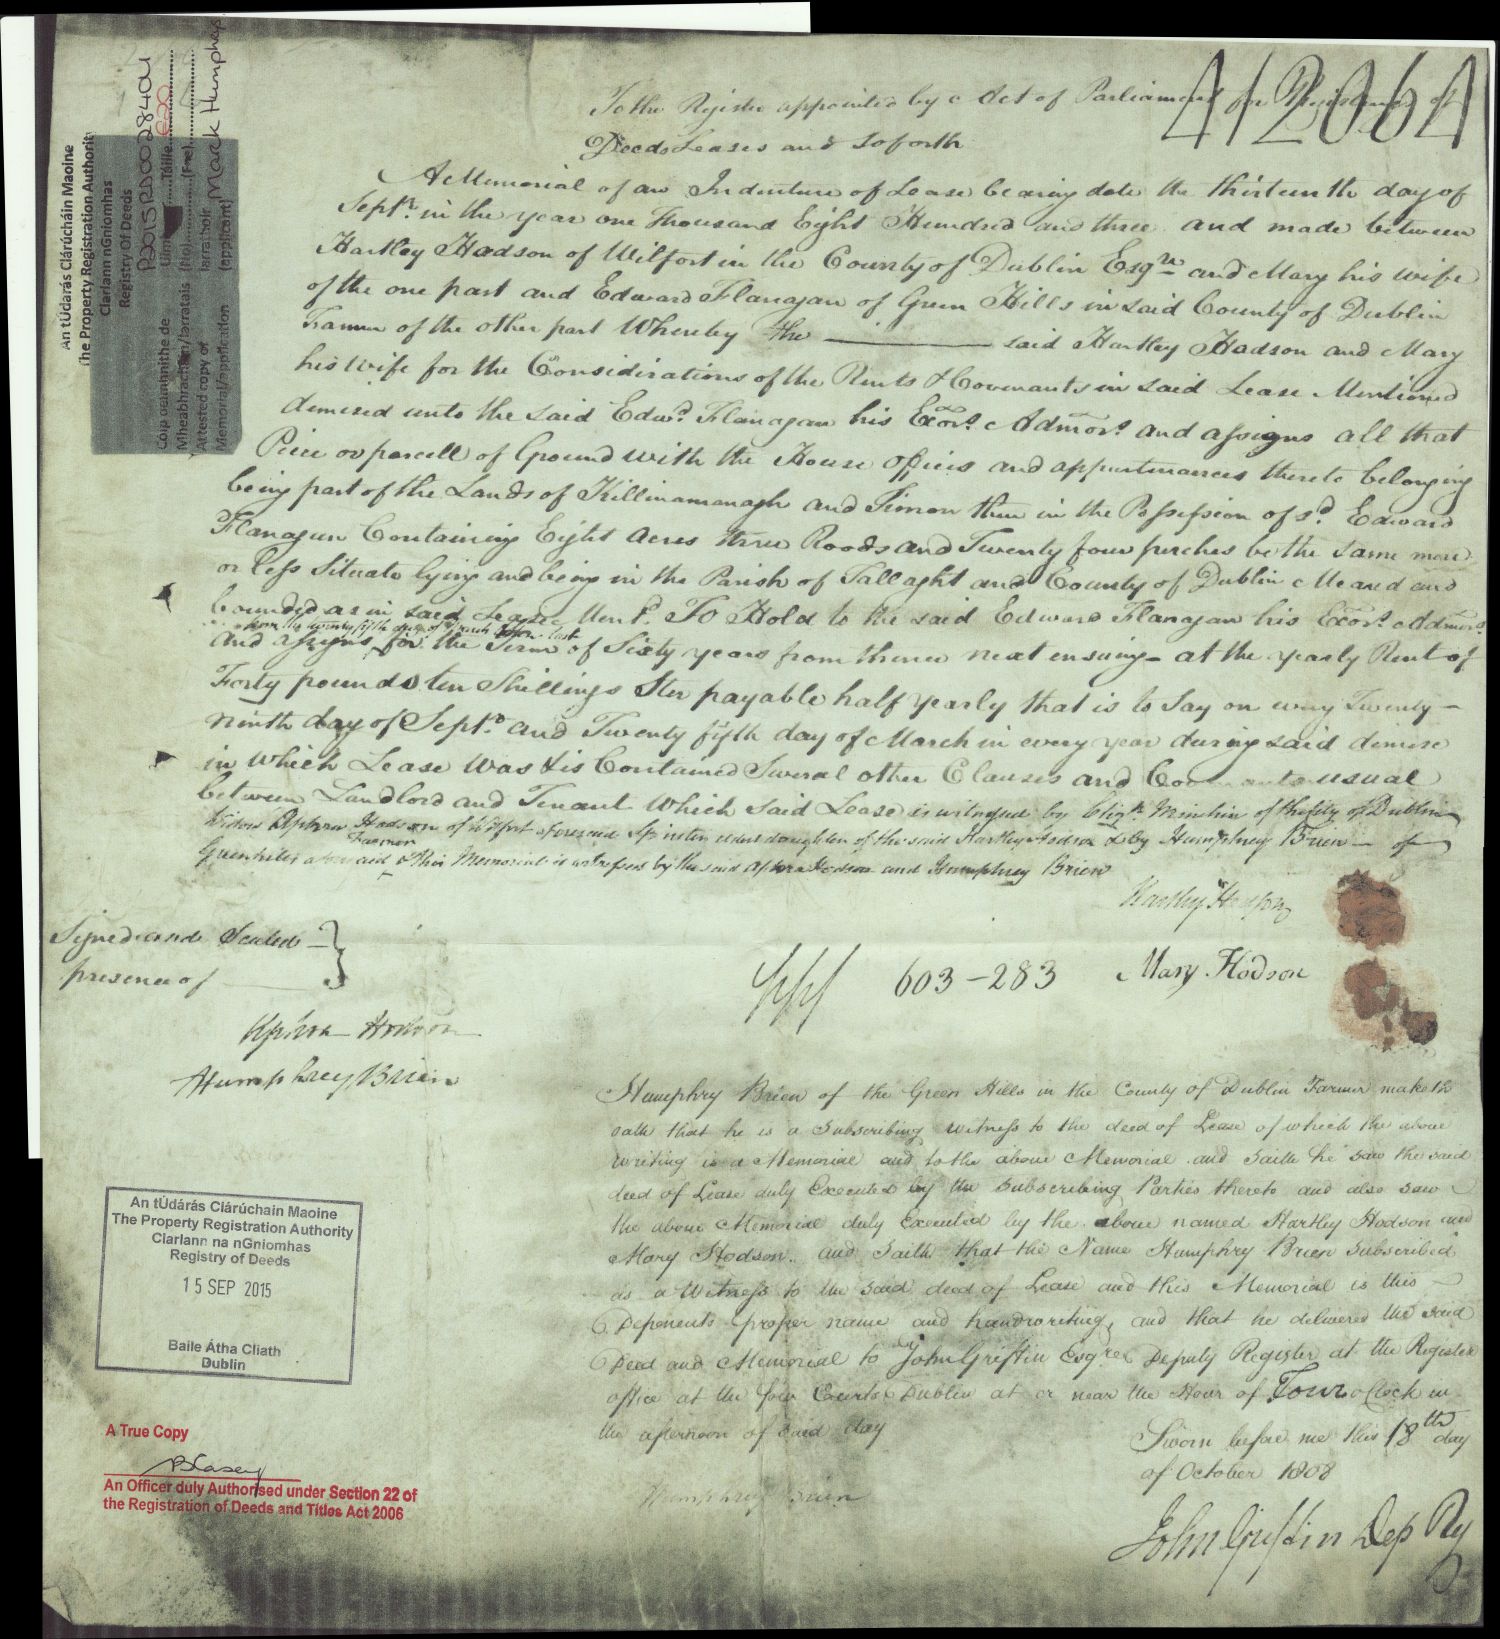 412064
To the Register appointed by Act of Parliament for Registering of
Deeds Leases and soforth
A Memorial of an Indenture of Lease bearing date the thirteenth day of
Septr. in the year one thousand Eight Hundred and three and made between
Hartley Hodson of Wilfort in the County of Dublin Esqre and Mary his wife
of the one part and Edward Flanagan of Green Hills in said County of Dublin
Farmer of the other part Whereby the said Hartley Hodson and Mary
his Wife for the Considirations of the Rents & Covenants in said Lease Mentioned
demised unto the said Edwd. Flanagan his Exors. Admors. and assigns all that
Peice or parcell of Ground with the House offices and appurtenances thereto belonging
being part of the Lands of Killinamanagh and Timon then in the Possession of sd. Edward
Flanagan Containing Eight Acres three Roods and Twenty four perches be the same more
or less Situate lying and being in the Parish of Tallaght and County of Dublin Meared and
bounded as in said Lease Mentd. To Hold to the said Edward Flanagan his Exors. Admors.
from the twenty fifth day of March then last
and assigns for the Term of Sixty years from thence next ensuing at the yearly Rent of
Forty pounds ten Shillings Ster payable half yearly that is to Say on every Twenty
ninth day of Septr. and Twenty fifth day of March in every year during said demise
in which Lease was & is Contained Several other Clauses and Covenants usual
between Landlord and Tenant Which Said Lease is witnessed by Elizh. Minchin of the City of Dublin
Widow Aphra Hodson of Wilfort aforesaid Spinster eldest daughter of the said Hartley Hodson & by Humphrey Brien of
Farmer
Greenhills aforesaid & this Memorial is witnessed by the said Aphra Hodson and Humphrey Brien
Hartley Hodson
Signed and Sealed
presence of
603-283
Mary Hodson
Aphra Hodson
Humphrey Brien
Humphry Brien of the Green Hills in the County of Dublin Farmer maketh
oath that he is a Subscribing witness to the deed of Lease of which the above
writing is a Memorial and to the above Memorial and Saith he saw the said
deed of Lease duly Executed by the Subscribing Parties thereto and also saw
the above Memorial duly Executed by the above named Hartley Hodson and
Mary Hodson and Saith that the Name Humphry Brien Subscribed
as a Witness to the said deed of Lease and this Memorial is this
Deponents proper name and handwriting, and that he delivered the said
Deed and Memorial to John Griffin Esqre Deputy Register at the Register
office at the four Courts Dublin at or near the Hour of Four o Clock in
the afternoon of said day
Sworn before me this 18th day
of October 1808
Humphrey Brien
John Griffin Dep Rg
An tÚdarás Clárúcháin Maoine
The Property Registration Authority
Clarlann na nGníomhas
Registry of Deeds
15 SEP 2015
Baile Átha Cliath
Dublin
A True Copy
An Officer duly Authorised under Section 22 of
the Registration of Deeds and Titles Act 2006
An tÚdarás Clárúcháin Maoine
The Property Registration Authority
Clarlann nGníomhas
Registry Of Deeds
P2015RD0028401
Cóip deimhnithe de
Mheabhrachán/Iarratais
Attested copy of
Memorial/application
Táille €20
(No) (Fee)
Iarratóir
(applicant)
Mark Humphrys